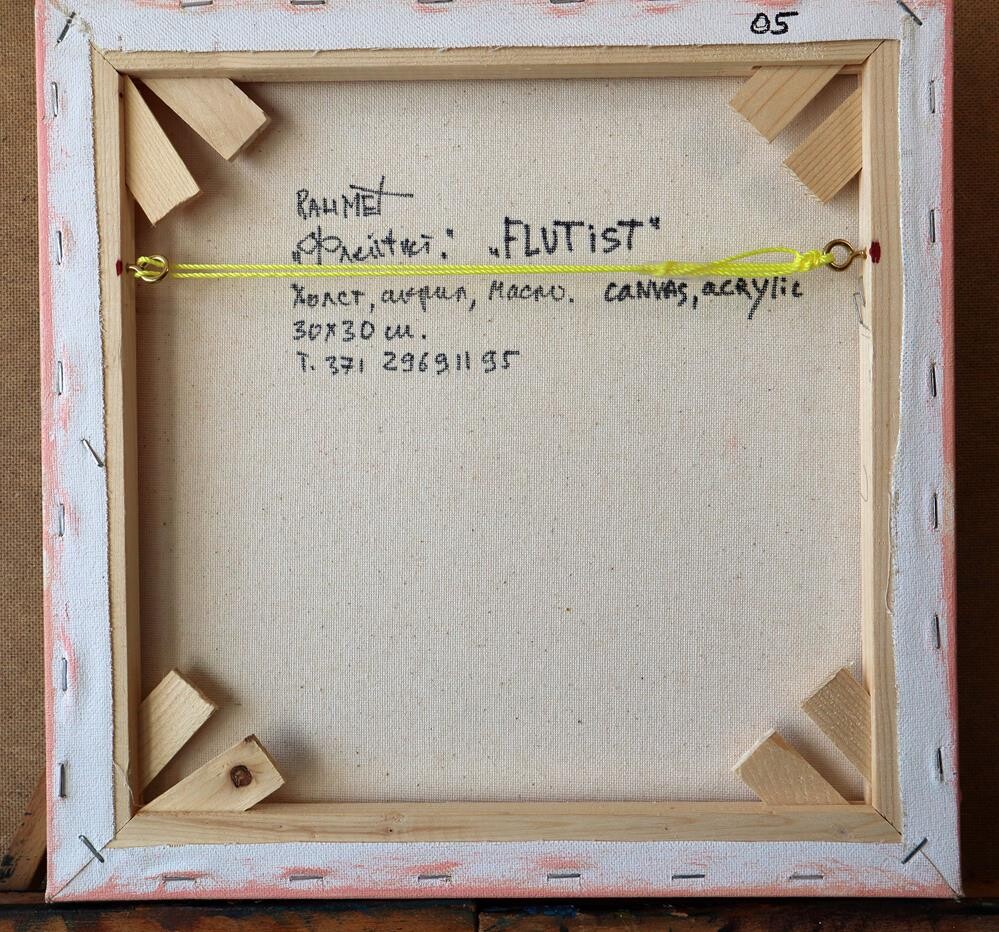 05
RAUMET
„Флейтист." „FLUTiST"
Холст, акрил, масло. CANVAS, ACRYLIC
30x30 см.
Т. 371 29691195